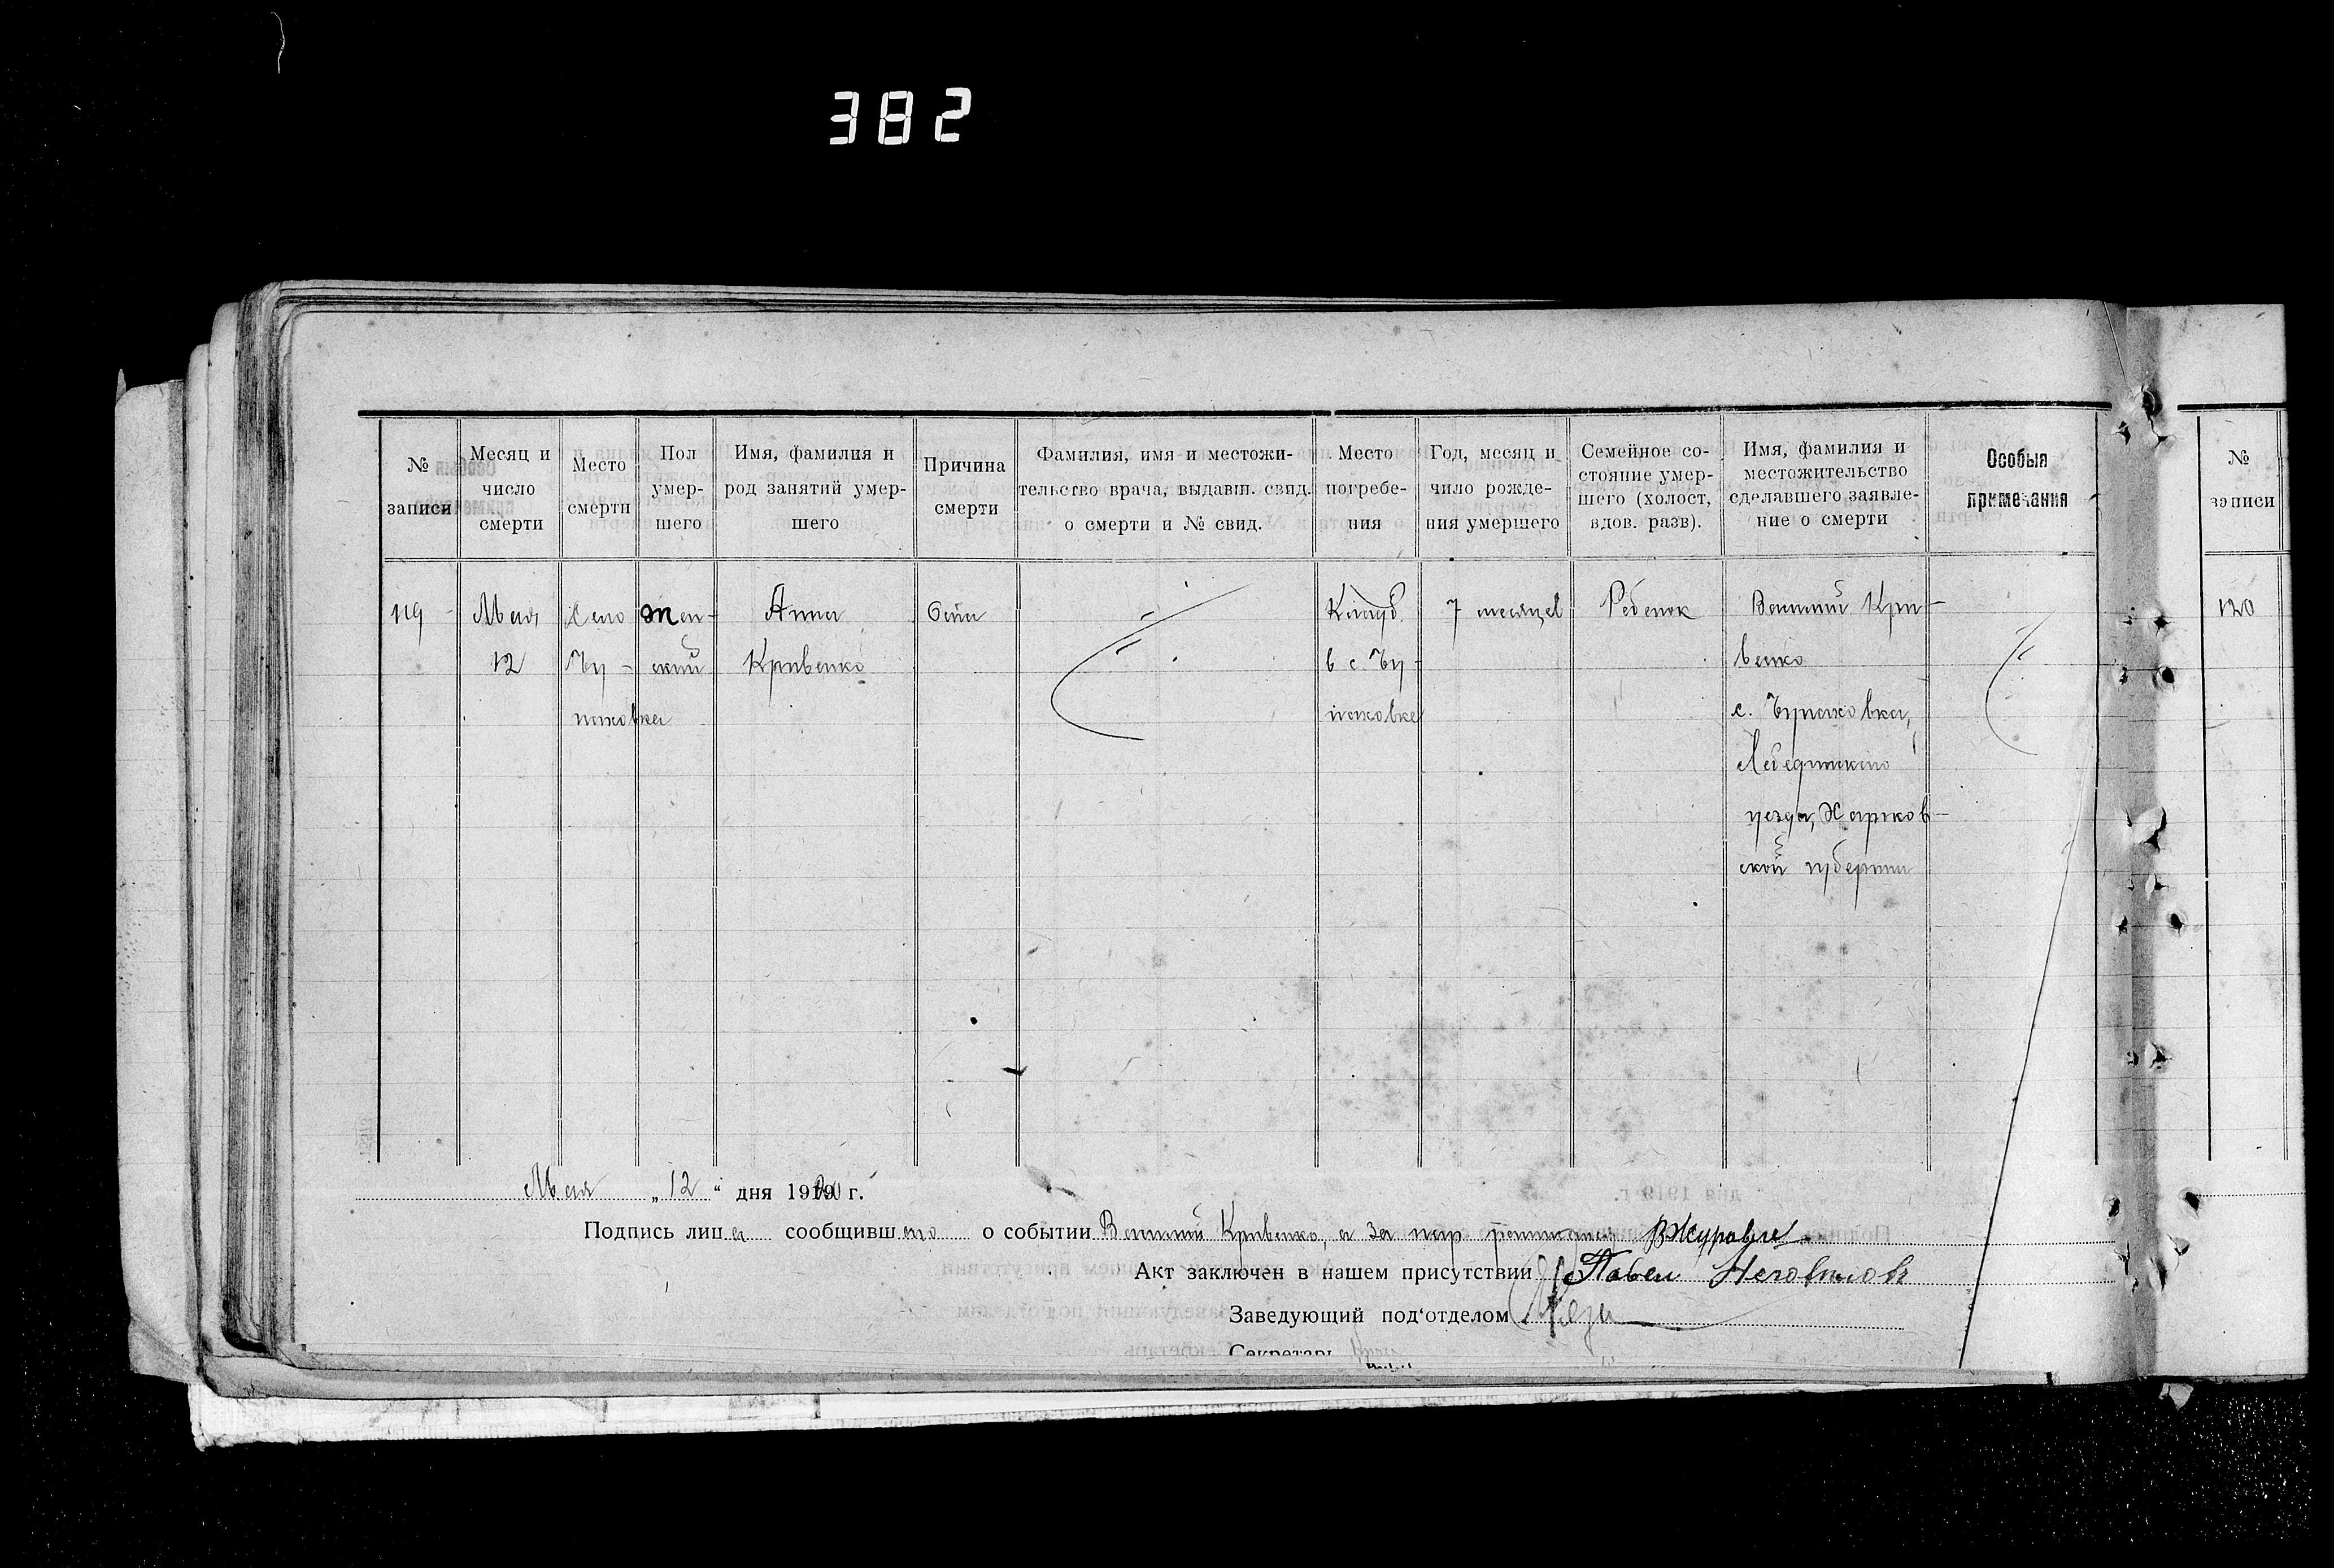 382
№ записи
Месяц и число смерти
Место смерти
Пол умер-шего
Имя, фамилия и род занятий умер-шего
Причина смерти
Фамилия, имя и местожи-тельство врача, выдавш. свид. о смерти и № свид.
Место погребе-ния
Год, месяц и чило рожде-ния умершего
Семейное со-стояние умер-шего (холост, вдов. разв).
Имя, фамилия и местожительство сделавшего заявле-ние о смерти
Особыя примечания
№ записи
119
Мая
12
Село
Бу-
Жен-
ский
Анна
Кривенко
Оспа
Кладб.
в с. Бу-
7 месяцев
Ребенок
Кри-
венко
Лебединского
уезда, Харьков-
ской губернии
120
Мая „12“ дня 1919 г.
Подпись лица сообщившего о событии Кривенко, а за
Акт заключен в нашем присутствии Павел
Заведующий под‘отделом
Секретарь